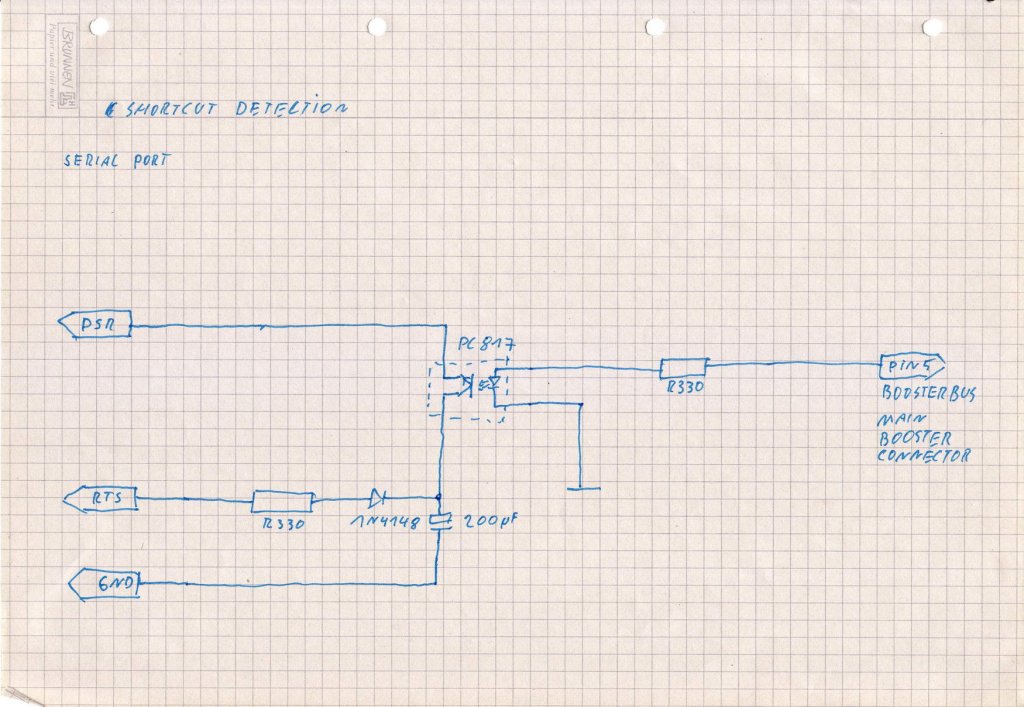 BRUNNEN
SHORTCUT DETECTION
SERIAL PORT
DSR
PC 817
PIN5
R330
BOOSTERBUS
MAIN
BOOSTER
CONNECTOR
RTS
R330
1N4148
200µF
GND